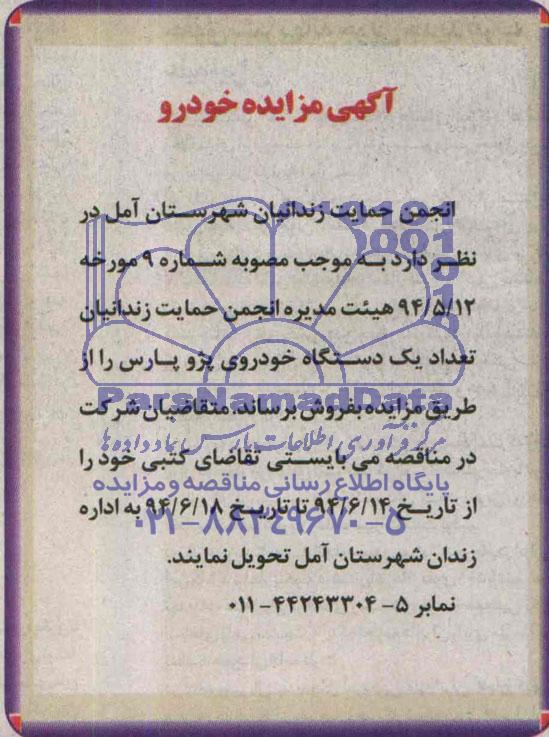 آگهی مزایده خودرو
انجمن حمایت زندانیان شهرستان آمل در
نظر دارد به موجب مصوبه شماره ۹ مورخه
۹۴/۵/۱۲ هیئت مدیره انجمن حمایت زندانیان
تعداد یک دستگاه خودروی پژو پارس را از
ParsNamadData
طریق مزایده بفروش برساند، متقاضیان شرکت
مرکز فرآوری اطلاعات پارس نماد داده ها
در مناقصه می بایستی تقاضای کتبی خود را
پایگاه اطلاع رسانی مناقصه و مزایده
از تاریخ ۹۴/۶/۱۴ تا تاریخ ۹۴/۶/۱۸ به اداره
۰۲۱-۸۸۳۴۹۶۷۰-۵
زندان شهرستان آمل تحویل نمایند.
نمابر ۵- ۴۴۲۴۳۳۰۴- ۰۱۱